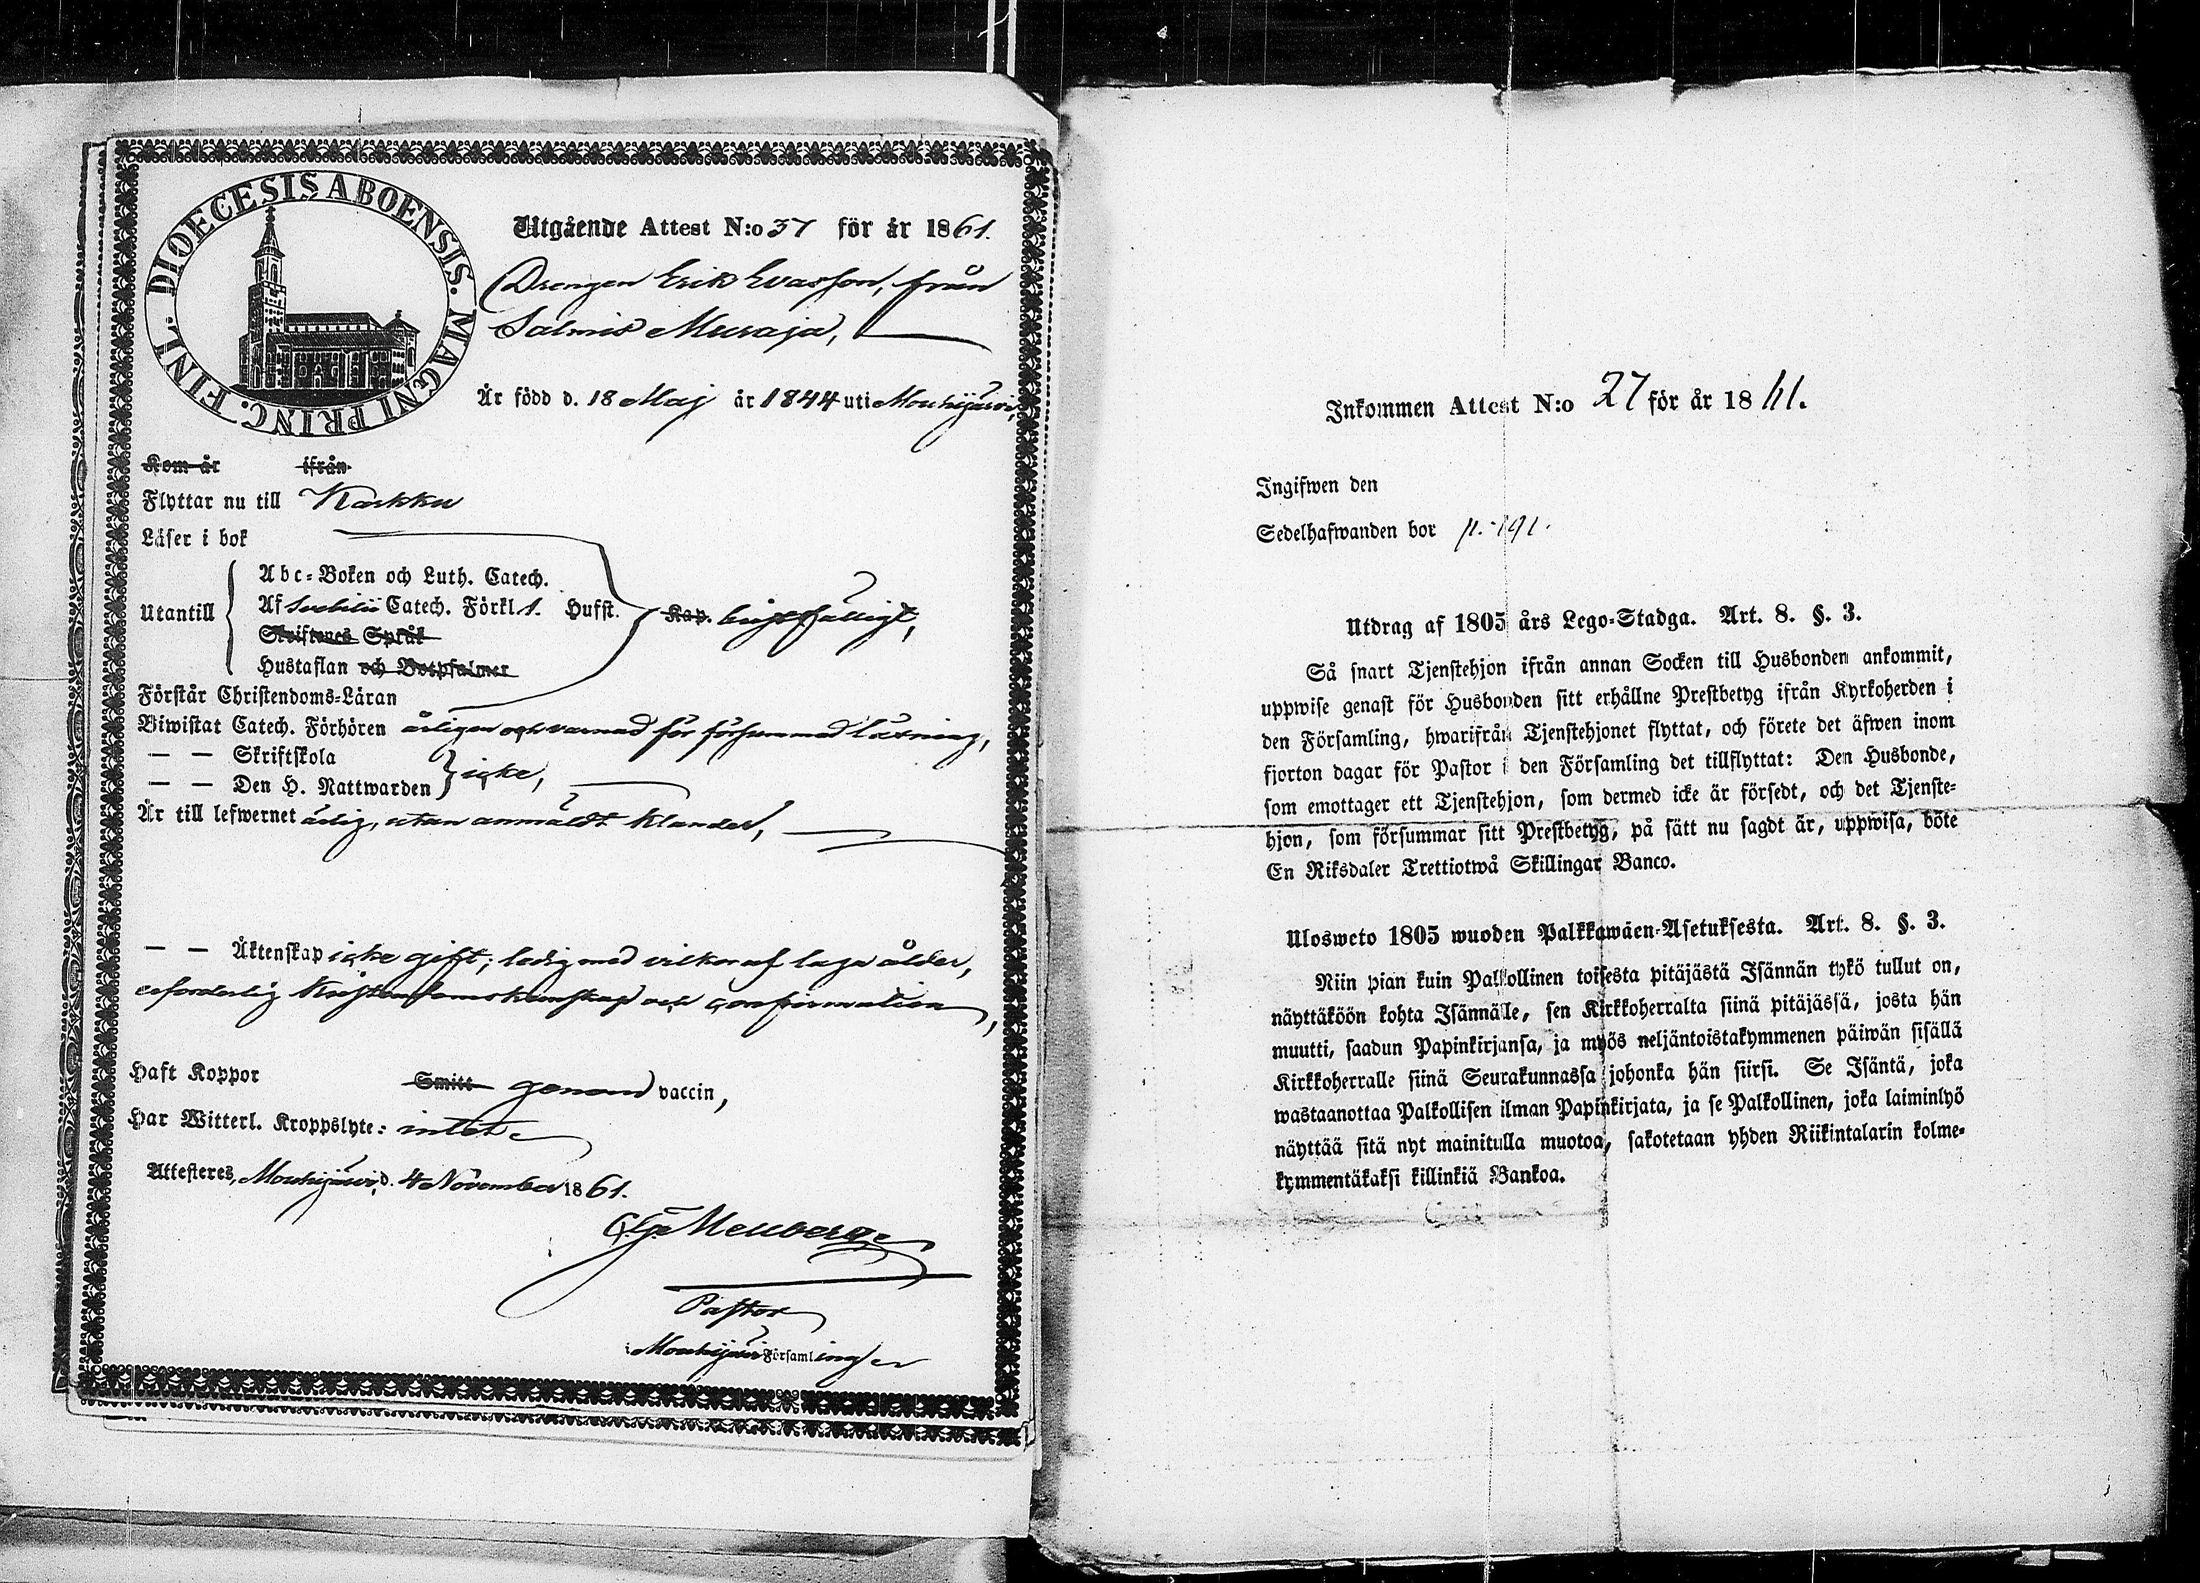 DIOECESIS ABOENSIS. MAGNI PRINC. FINL.
Utgående Attest N:o 37 för år 1861.
Drengen Erik Evasson, från
Salmis Muraja,
Är född d. 18 Maj år 1844 uti Mouhijärvi,
Kom år ifrån
Flyttar nu till Karkku
Läser i bok
Utantill
Abc-Boken och Luth. Catech.
Af Svebilii Catech. Förkl. 1. Hufst. Kap. bristfälligt,
Skriftenes Språk
Hustaflan och Botpsalmer
Förstår Christendoms-Läran
Biwistat Catech. Förhören årligen och varnad för försummad läsning,
— — Skriftskola
— — Den H. Nattwarden icke,
Är till lefwernet ärlig, utan anmäldt klander,
— — Äktenskap icke gift; ledig med vilkor af laga ålder,
erforderlig Kristendomskunskap och confirmation,
Haft Koppor Smitt genom vaccin,
Har Witterl. Kroppslyte: intet.
Attesteres, Mouhijärvi, d. 4 November 1861.
Mellberg
Pastor
i Mouhijärvi Församlingar
Inkommen Attest N:o 27 för år 1861.
Ingifwen den
Sedelhafwanden bor p. 191.
Utdrag af 1805 års Lego-Stadga. Art. 8. §. 3.
Så snart Tjenstehjon ifrån annan Socken till Husbonden ankommit,
uppwise genast för Husbonden sitt erhållne Prestbetyg ifrån Kyrkoherden i
den Församling, hwarifrån Tjenstehjonet flyttat, och förete det äfwen inom
fjorton dagar för Pastor i den Församling det tillflyttat: Den Husbonde,
som emottager ett Tjenstehjon, som dermed icke är försedt, och det Tjenste-
hjon, som försummar sitt Prestbetyg, på sätt nu sagdt är, uppwisa, böte
En Riksdaler Trettiotwå Skillingar Banco.
Ulosweto 1805 wuoden Palkkawäen-Asetuksesta. Art. 8. §. 3.
Niin pian kuin Palkollinen toisesta pitäjästä Isännän tykö tullut on,
näyttäköön kohta Isännälle, sen Kirkkoherralta siinä pitäjässä, josta hän
muutti, saadun Papinkirjansa, ja myös neljäntoistakymmenen päiwän sisällä
Kirkkoherralle siinä Seurakunnassa johonka hän siirsi. Se Isäntä, joka
wastaanottaa Palkollisen ilman Papinkirjata, ja se Palkollinen, joka laiminlyö
näyttää sitä nyt mainitulla muotoa, sakotetaan yhden Riikintalarin kolme-
kymmentäkaksi killinkiä Bankoa.